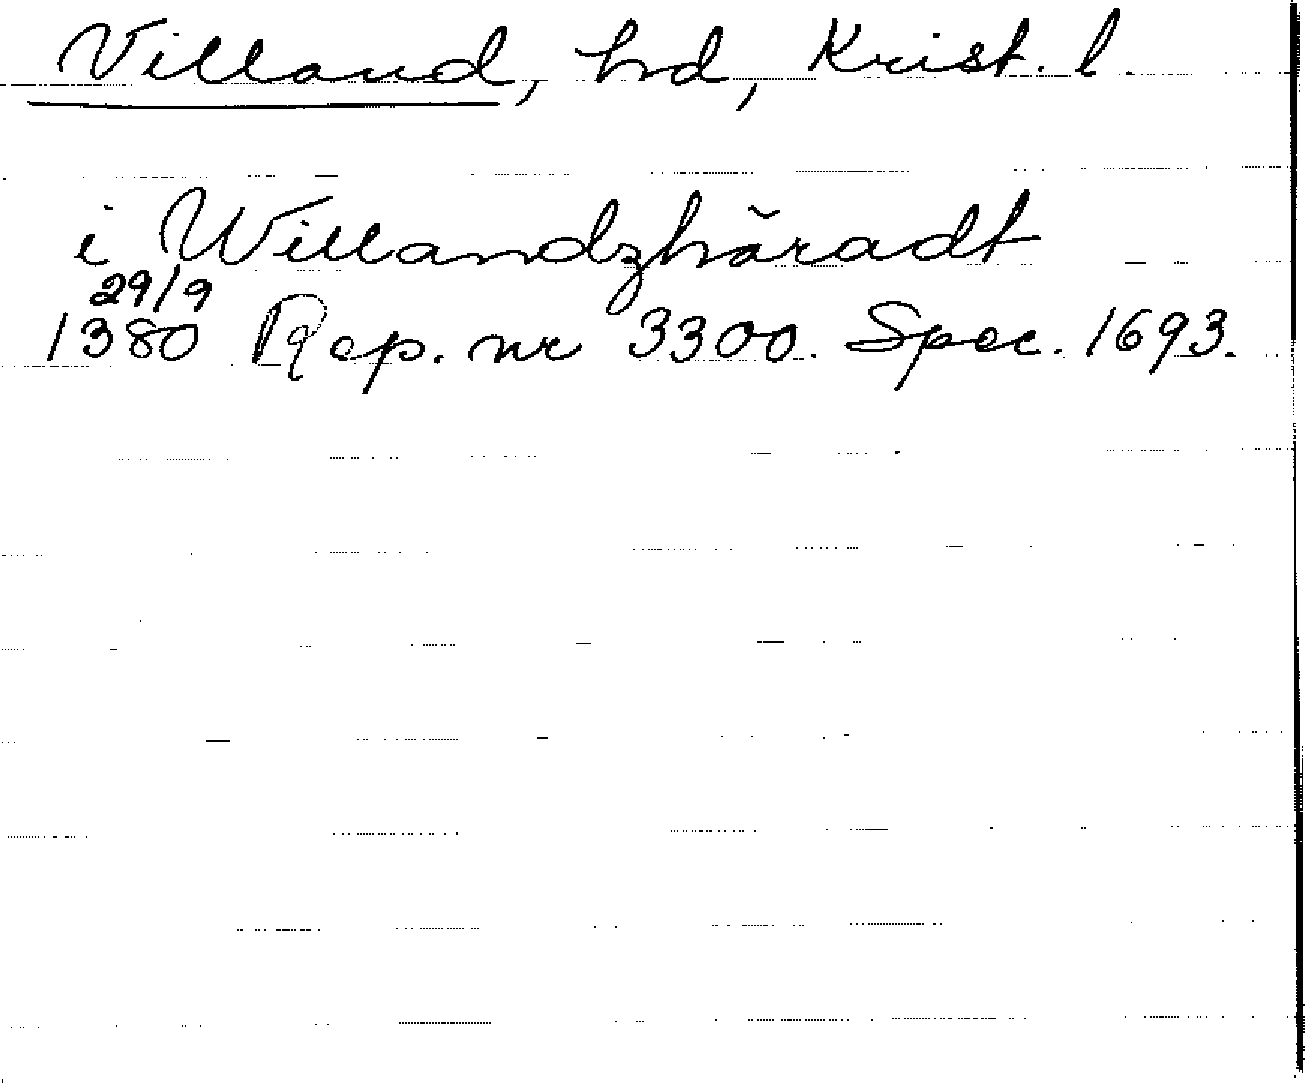 Villand, hd, Krist. l.
i Willandzhäradt
29/9
1380 Rep. nr 3300. Spec. 1693.